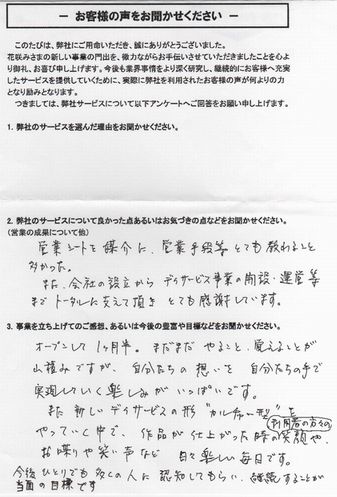 ― お客様の声をお聞かせください ―
このたびは、弊社にご用命いただき、誠にありがとうございました。
花咲みさまの新しい事業の門出を、微力ながらお手伝いさせていただきましたことを心よ
り御礼、お喜び申し上げます。今後も業界事情をより深く研究し、継続的にお客様へ充実
したサービスを提供していくために、実際に弊社を利用されたお客様の声が何よりの力
となり励みとなります。
つきましては、弊社サービスについて以下アンケートへご回答をお願い申し上げます。
1. 弊社のサービスを選んだ理由をお聞かせください。
2. 弊社のサービスについて良かった点あるいはお気づきの点などをお聞かせください。
(営業の成果について他)
営業シートを媒介に、営業手段等とても教わること
多かった。
また、会社の設立からデイサービス事業の開設・運営等
までトータルに支えて頂きとても感謝しています。
3. 事業を立ち上げてのご感想、あるいは今後の豊富や目標などをお聞かせください。
オープンして1ヶ月半。まだまだやること、覚えることが
山積みですが、自分たちの想いを自分たちの手で
実現していく楽しみがいっぱいです。
また新しいデイサービスの形"カルチャー型"を
やっていく中で、作品が仕上がった時の利用者の方々の笑顔や、
お喋りや笑い声など日々楽しい毎日です。
今後ひとりでも多くの人に認知してもらい、継続することが
当面の目標です